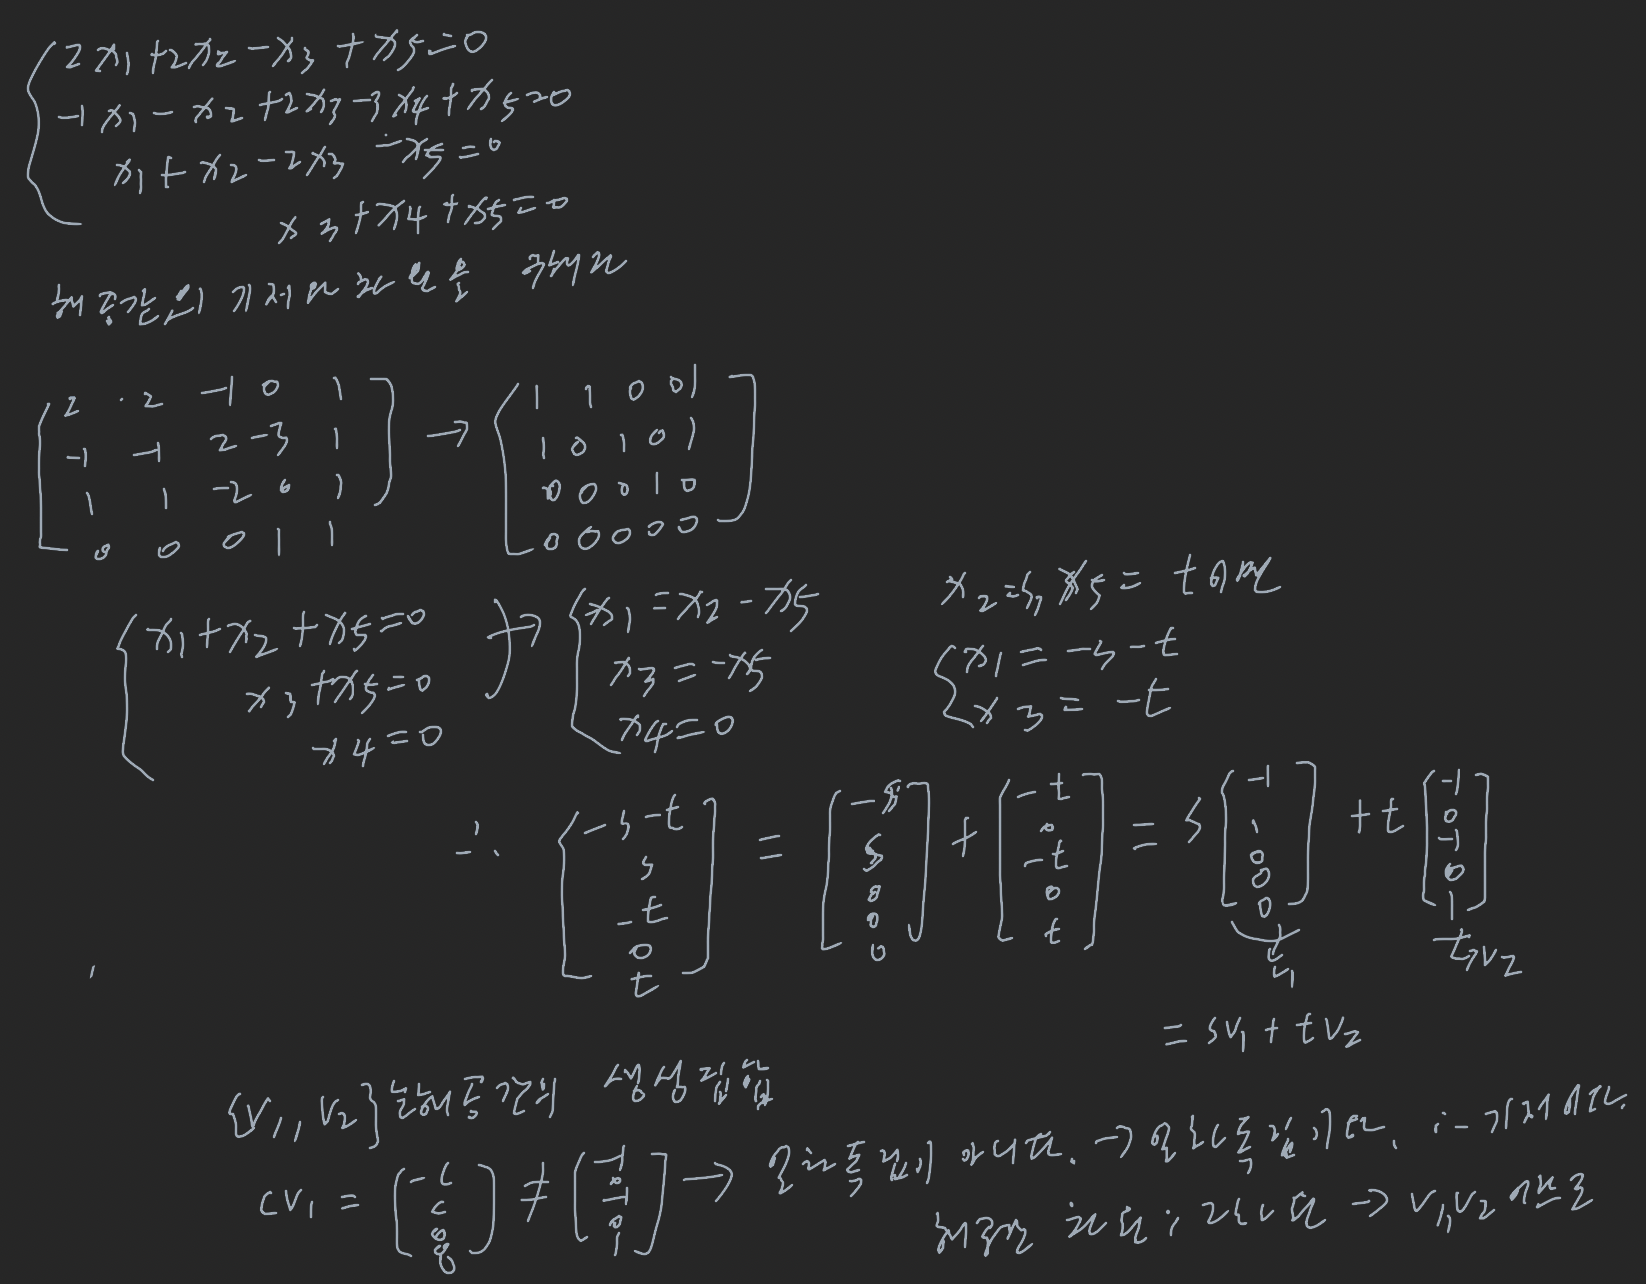 2x₁+2x₂-x₃+x₅=0
-1x₁-x₂+2x₃-3x₄+x₅=0
x₁+x₂-2x₃ -x₅=0
x₃+x₄+x₅=0
해공간의 기저와 차원을 구해라
[2 2 -1 0 1 → [1 1 0 0 1
-1 -1 2 -3 1 1 0 1 0 1
1 1 -2 0 1 0 0 0 1 0
0 0 0 1 1] 0 0 0 0 0]
x₁+x₂+x₅=0 → x₁=x₂-x₅ x₂=s, x₅=t이면
x₃+x₅=0 x₃=-x₅ x₁=-s-t
x₄=0 x₄=0 x₃=-t
∴ [-s-t s -t 0 t] = [-s s 0 0 0] + [-t 0 -t 0 t] = s[-1 1 0 0 0] + t[-1 0 -1 0 1]
v₁ →v₂
= sv₁+tv₂
{v₁, v₂}는 해공간의 생성집합
cv₁ = [-c c 0 0 0] ≠ [-1 0 -1 0 1] → 일차독립이 아니다. → 일차독립이다. ∴ 기저이다.
해공간 차원; 2차원 → v₁,v₂